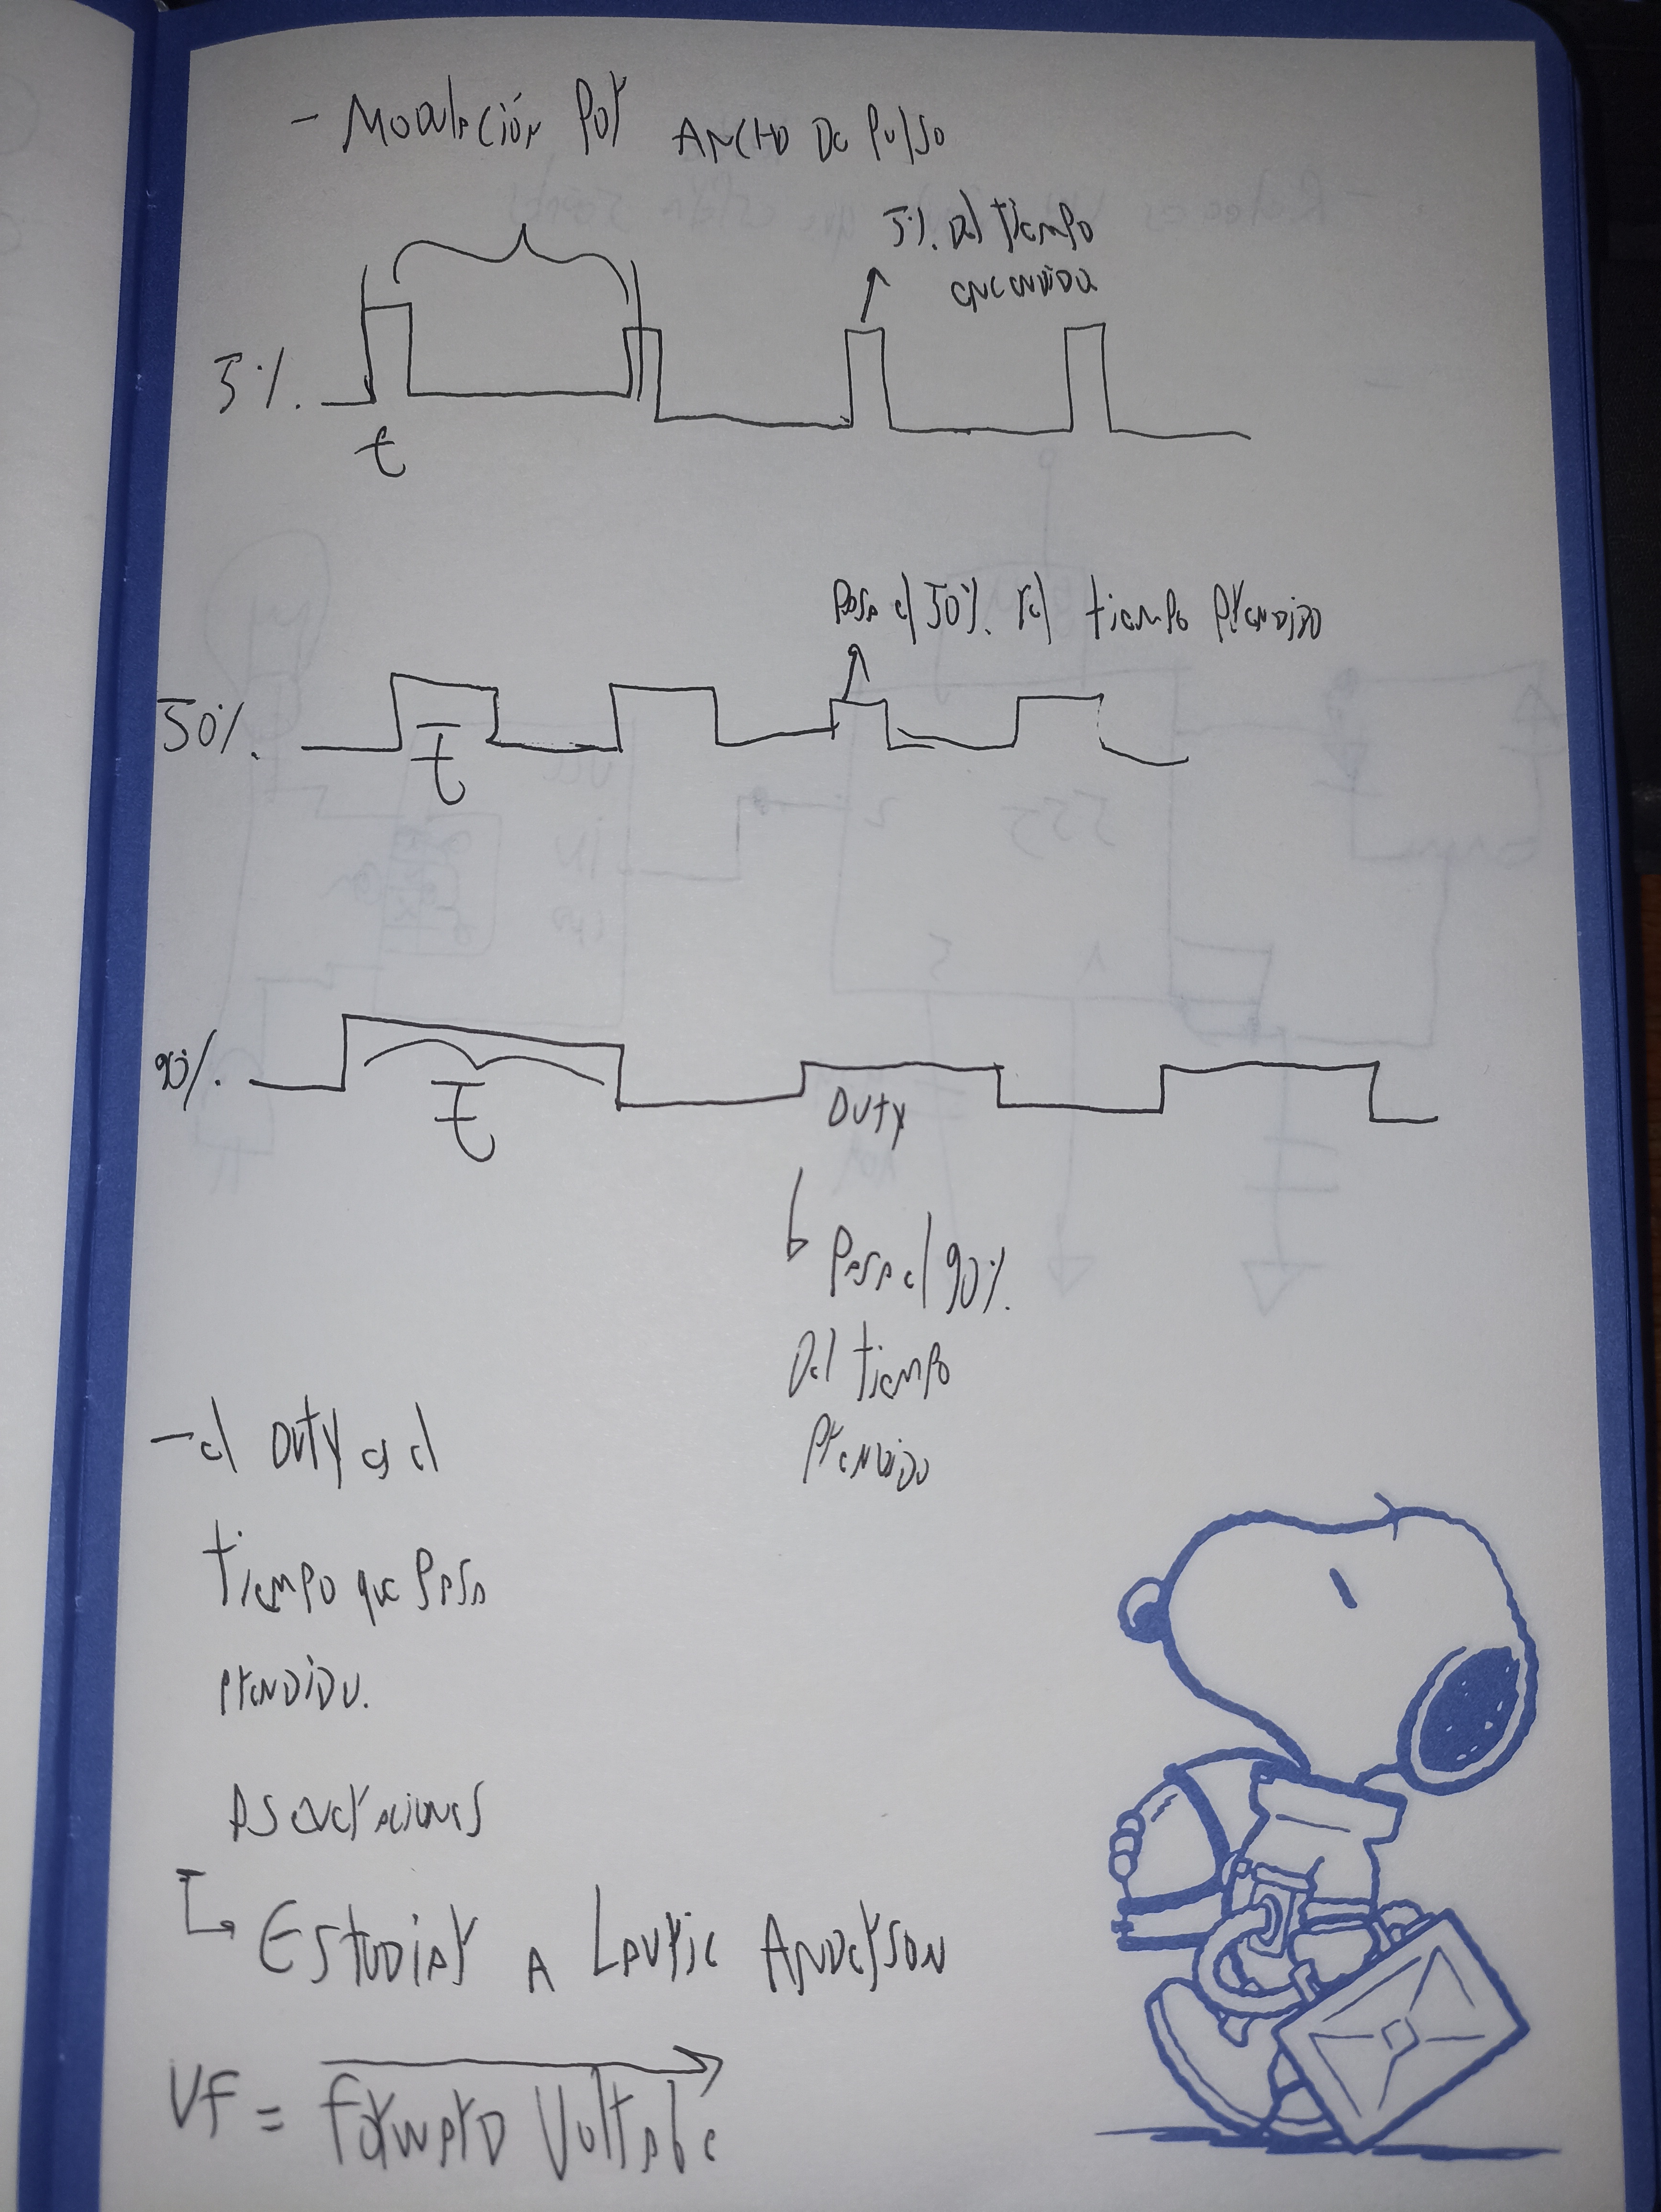 - Modulación Por Ancho De Pulso
5% Del tiempo
encendida
5%.
t
Pasa el 50%. del tiempo Prendido
50%.
t
90%.
t
Duty
Pasa el 90%.
Del tiempo
Prendido
- el Duty es el
tiempo que Pasa
prendido.
Aseveraciones
Estudiar a Laurie Anderson
VF = Forward Voltage